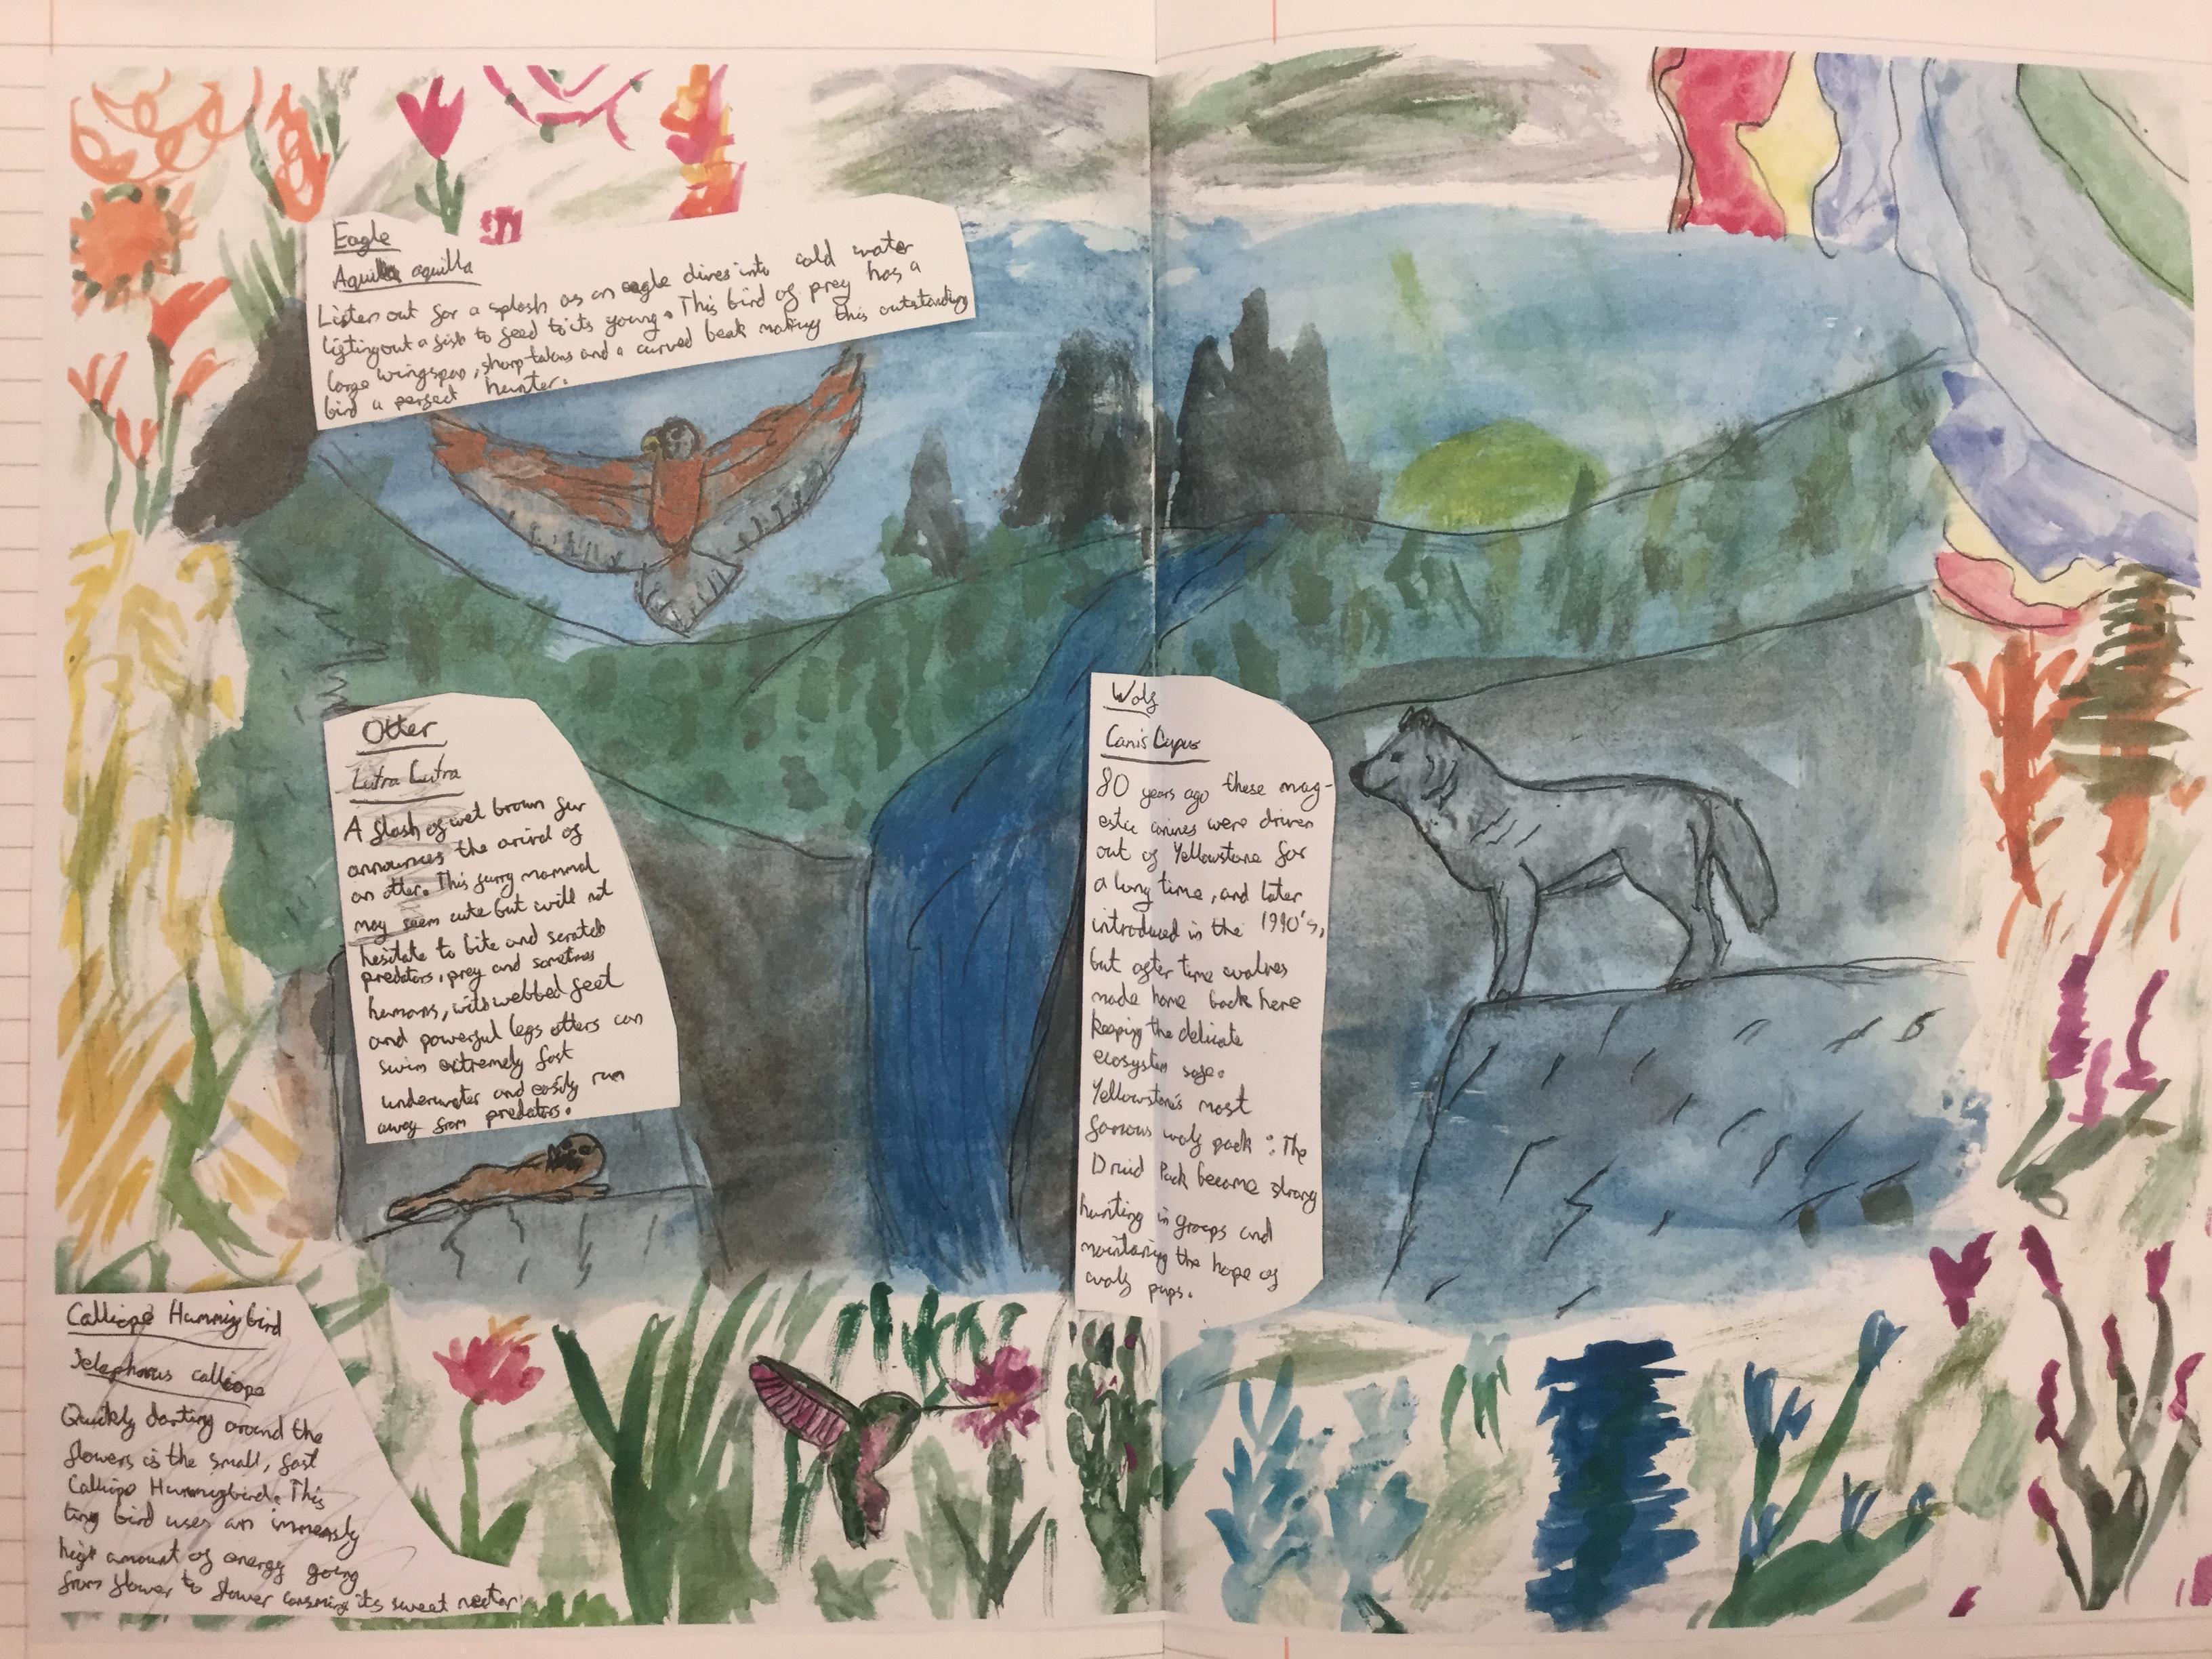 Eagle
Aquila aquilla
Listen out for a splash as an eagle dives into cold water
ligting out a fish to feed to its young. This bird of prey has a
large wingspan, sharp talons and a curved beak making this outstanding
bird a perfect hunter.
Otter
Lutra Lutra
A flash of wet brown fur
announces the arival of
an otter. This furry mammal
may seem cute but will not
hesitate to bite and scratch
predators, prey and sometimes
humans, with webbed feet
and powerful legs otters can
swim extremely fast
underwater and easily run
away from predators.
Wolf
Canis Lupus
80 years ago these mag-
estic canines were driven
out of Yellowstone for
a long time, and later
introduced in the 1990's,
but after time wolves
made home back here
keeping the delicate
ecosystem safe.
Yellowstone's most
famous wolf pack: The
Druid Pack became strong
hunting in groups and
maintaning the hope of
wolf pups.
Calliope Hummigbird
Selephorus calliope
Quickly darting around the
flowers is the small, fast
Calliope Hummigbird. This
tiny bird uses an immensly
high amount of energy going
from flower to flower consming its sweet nectar